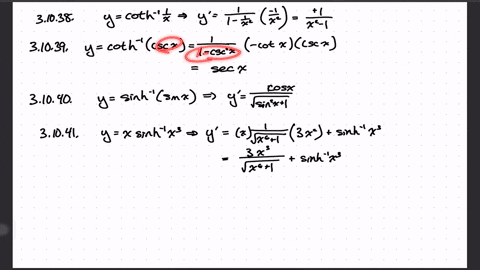 3.10.38. y = coth⁻¹ 1/x ⇒ y' = 1/(1 - 1/x²) (-1/x²) = +1/(x²-1)
3.10.39. y = coth⁻¹(csc x) = 1/(1-csc²x) (-cot x)(csc x)
= sec x
3.10.40. y = sinh⁻¹(sin x) ⇒ y' = cos x/√(sin²x+1)
3.10.41. y = x sinh⁻¹x³ ⇒ y' = (x) 1/√(x⁶+1) (3x²) + sinh⁻¹x³
= 3x³/√(x⁶+1) + sinh⁻¹x³